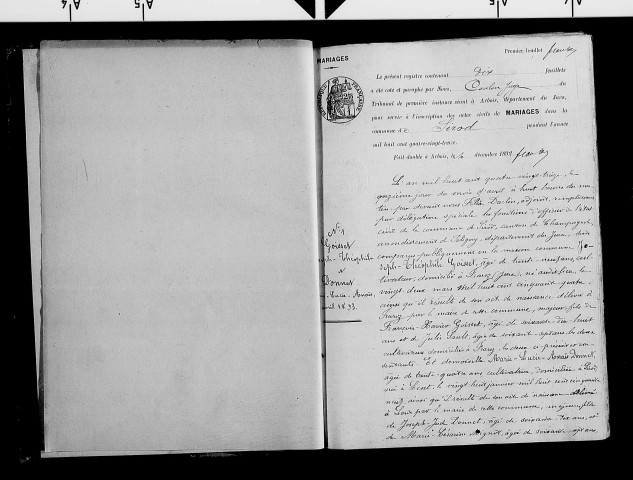 MARIAGES
Premier feuillet
Le présent registre contenant Dix feuillets
a été coté et paraphé par Nous, Juge du
Tribunal de première instance séant à Arbois, Département du Jura,
pour servir à l'inscription des actes civils de MARIAGES dans la
commune de Sirod pendant l'année
mil huit cent quatre-vingt-treize.
Fait double à Arbois, le décembre 1892
N° 1
Goisset
Joseph-Théophile
&
Donnet
Marie-Lucie-Anaïs
avril 1893.
L'an mil huit cent quatre-vingt-treize, le
quinzième jour du mois d'avril à huit heures du ma-
tin, par devant nous Félix adjoint, remplissant
par délégation spéciale les fonctions d'officier de l'état
civil de la commune de Sirod, canton de Champagnole,
arrondissement de Poligny, département du Jura, sont
comparus publiquement en la maison commune Jo-
seph-Théophile Goisset, âgé de trente-neuf ans, cul-
tivateur, domicilié à (Jura), né audit lieu le
vingt deux mars mil huit cent cinquante quatre,
ainsi qu'il résulte de son acte de naissance délivré à
par le maire de cette commune, majeur, fils de
François-Xavier Goisset, âgé de soixante-dix huit
ans et de Julie âgée de soixante-sept ans, les deux
cultivateurs domiciliés à les deux ci-présents et con-
sentants. Et demoiselle Marie-Lucie-Anaïs Donnet,
âgée de trente-quatre ans cultivatrice, domiciliée à Sirod,
née à le vingt huit janvier mil huit cent cinquante
neuf, ainsi qu'il résulte de son acte de naissance délivré
à par le maire de cette commune, majeure, fille
de Joseph- Donnet, âgé de soixante dix ans, et
de Marie-Césarine âgée de soixante sept ans,